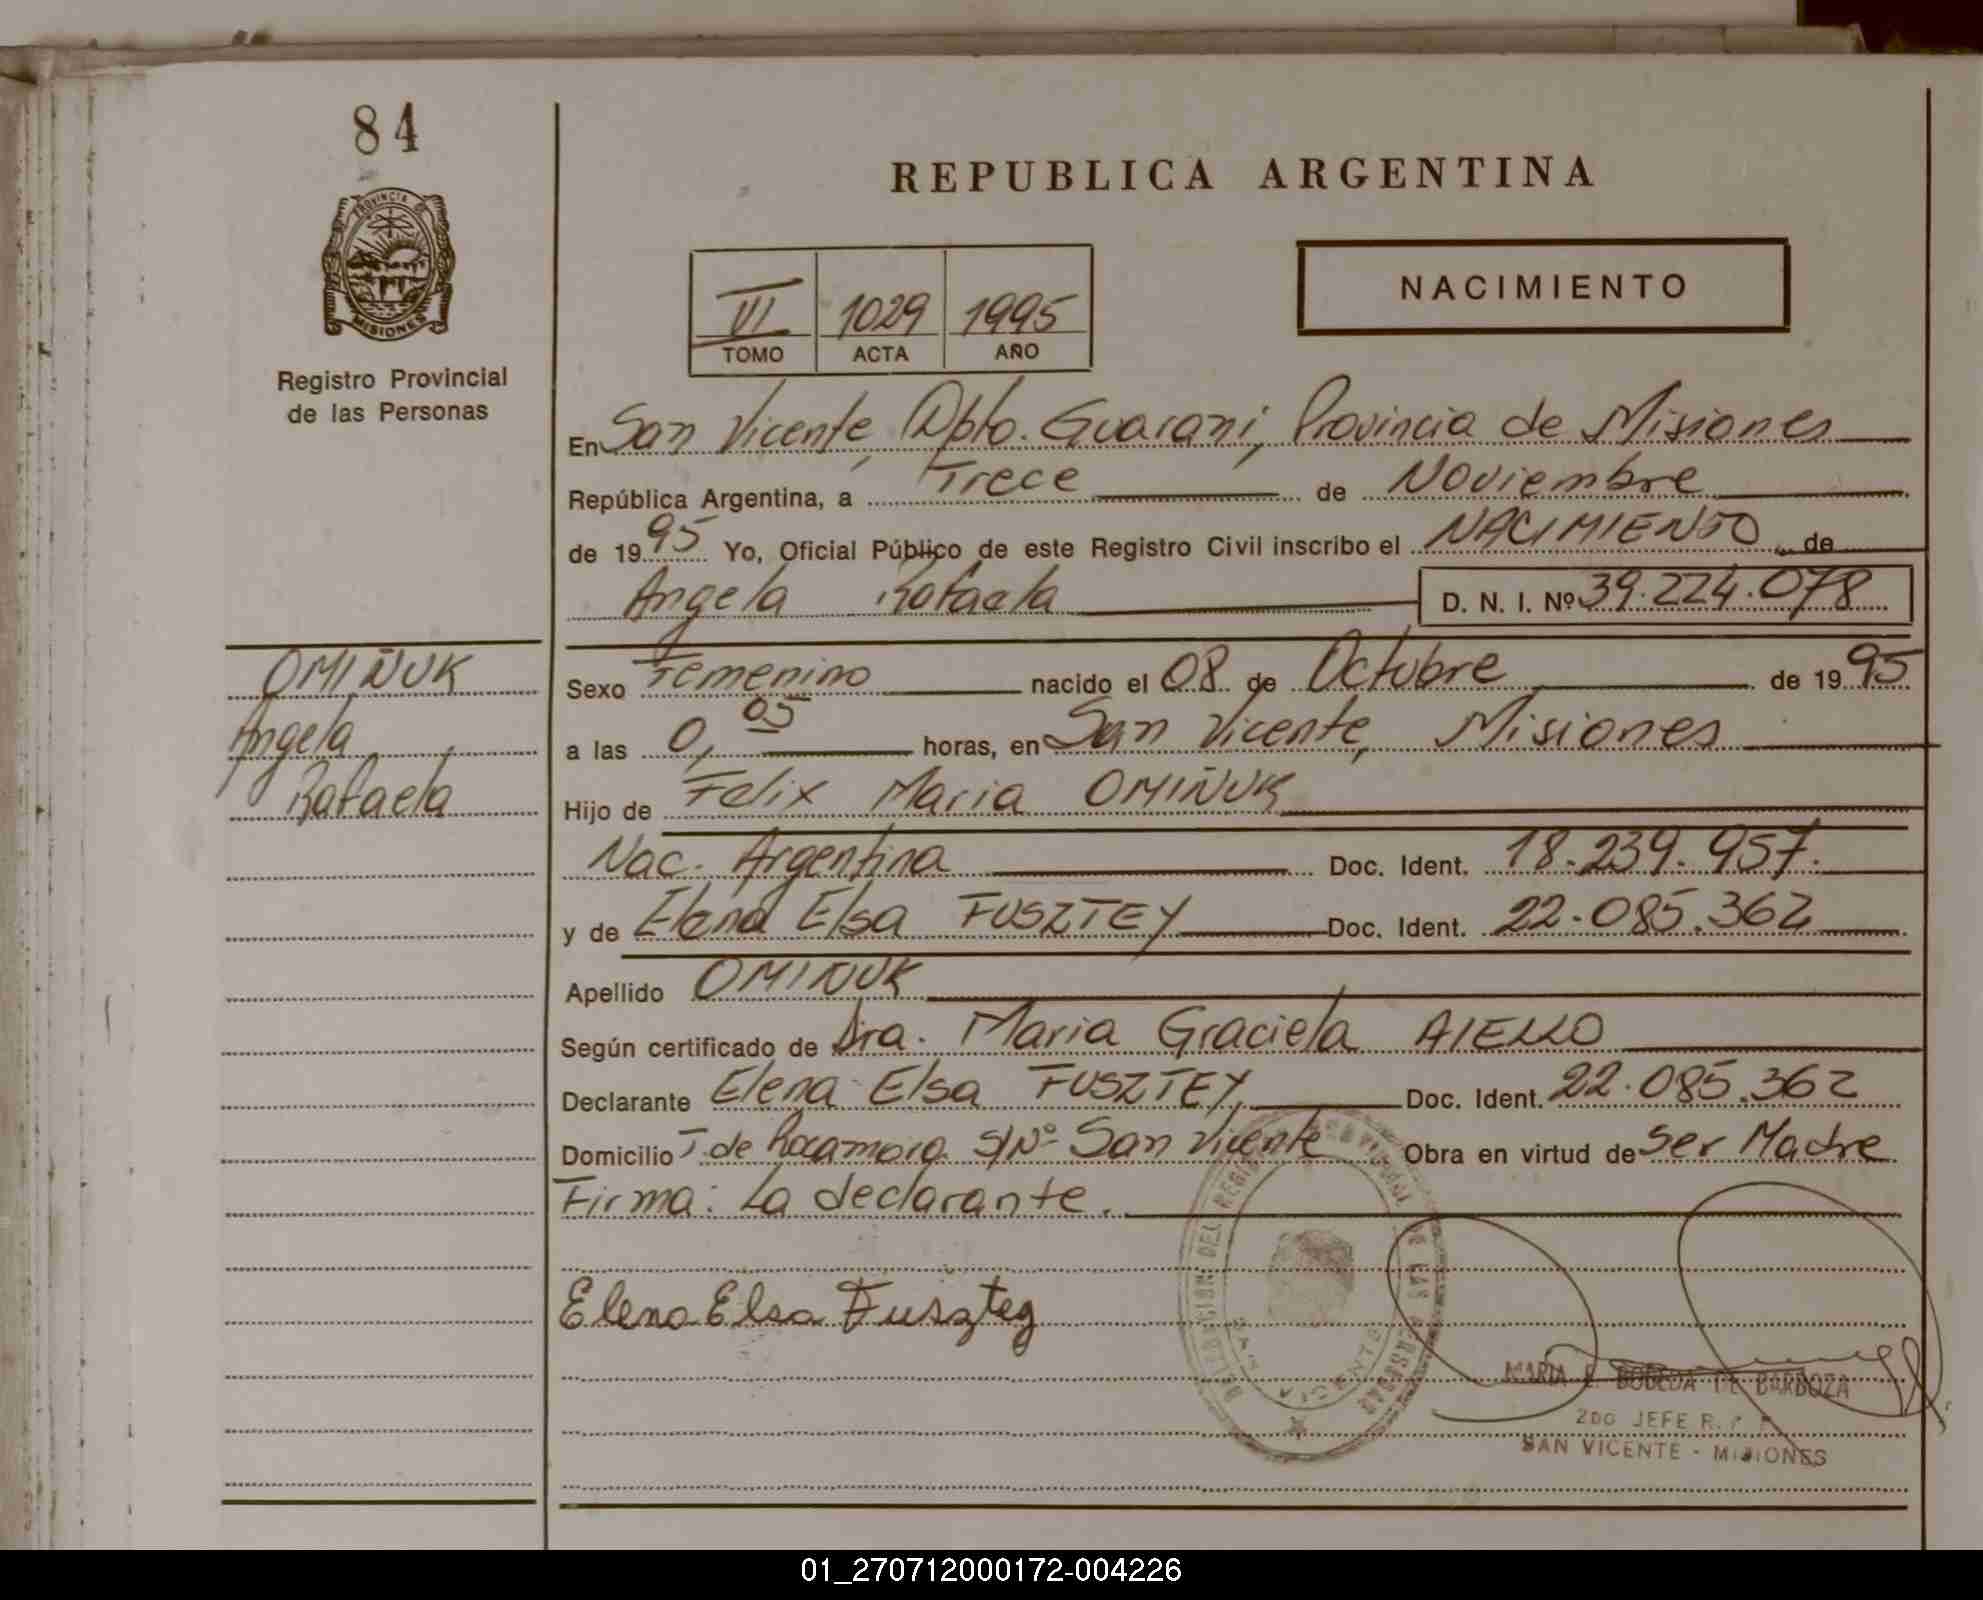 84
REPUBLICA ARGENTINA
PROVINCIA DE
MISIONES
Registro Provincial
de las Personas
VI 1029 1995
TOMO ACTA AÑO
NACIMIENTO
En San Vicente, Dpto. Guarani, Provincia de Misiones
República Argentina, a Trece de Noviembre
de 1995 Yo, Oficial Público de este Registro Civil inscribo el NACIMIENTO de
Angela Rafaela D. N. I. Nº 39.224.078
OMIÑUK
Angela
Rafaela
Sexo Femenino nacido el 08 de Octubre de 1995
a las 0,05 horas, en San Vicente, Misiones
Hijo de Felix Maria OMIÑUK
Nac. Argentina Doc. Ident. 18.239.957.
y de Elena Elsa FUSZTEY Doc. Ident. 22.085.362
Apellido OMIÑUK
Según certificado de Dra. Maria Graciela AIELLO
Declarante Elena Elsa FUSZTEY, Doc. Ident. 22.085.362
Domicilio T. de Rocamora S/Nº San Vicente Obra en virtud de Ser Madre
Firma: La declarante.
Elena Elsa Fusztey
DELEGACION DEL REGISTRO PROVINCIAL DE LAS PERSONAS
SAN VICENTE
MARIA E. BOBEDA DE BARBOZA
2DO JEFE R. P. P.
SAN VICENTE - MISIONES
01_270712000172-004226